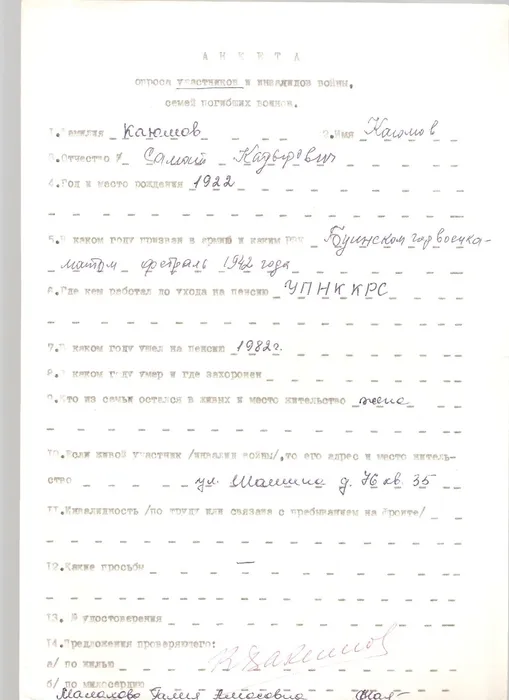 АНКЕТА
опроса участников и инвалидов войны,
семей погибших воинов.
1.Фамилия Каюмов 2.Имя Каюмов
3.Отчество Самый Кадырович
4.Год и место рождения 1922
5.В каком году призван в армию и каким рвк Буинском горвоенка-
матом февраль 1942 года
6.Где кем работал до ухода на пенсию УПНККРС
7.В каком году ушел на пенсию 1982г.
8.В каком году умер и где захоронен
9.Кто из семьи остался в живых и место жительство жена
10.Если живой участник /инвалид войны/,то его адрес и место житель-
ство ул. Шашина д. 76 кв. 35
11.Инвалидность /по труду или связана с пребыванием на фронте/
12.Какие просьбы —
13. № удостоверения
14.Предложения проверяющего:
а/ по жилью
б/ по милосердию
Галия